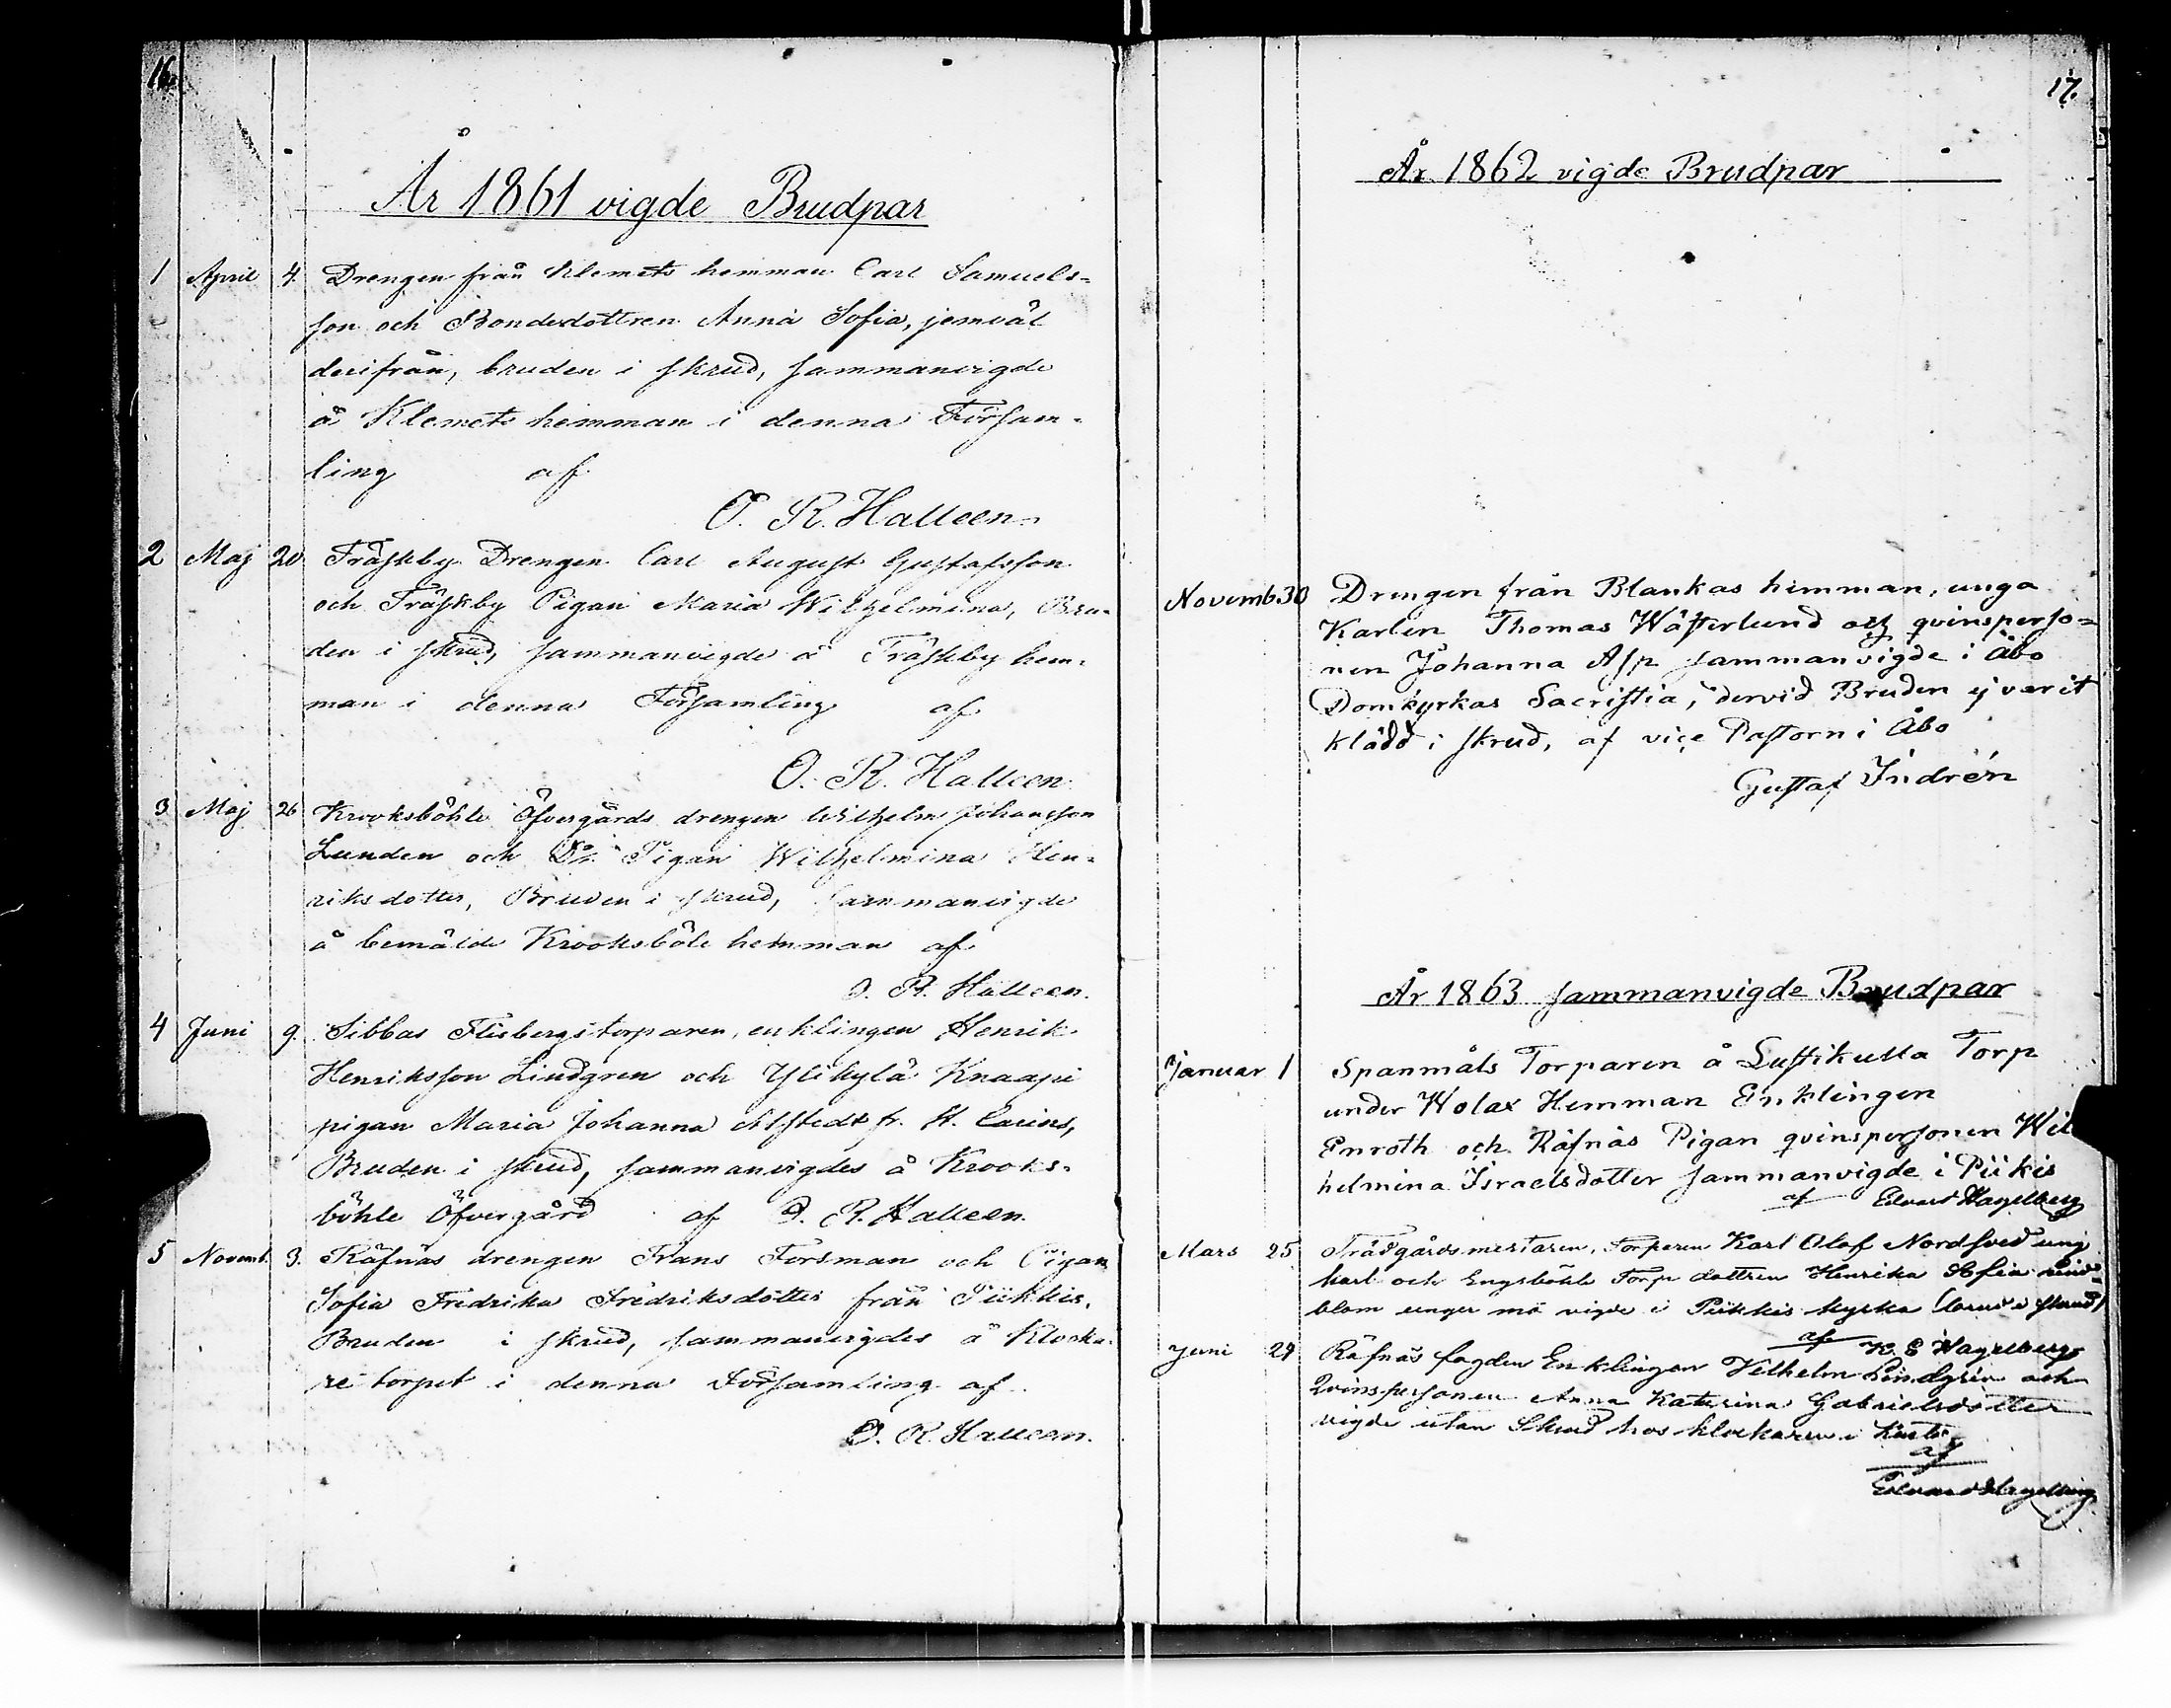 16.
År 1861 vigde Brudpar
1 April 4. Drengen från Klemets hemman Carl Samuels-
son och Bondedottren Anna Sofia, jemväl
derifrån, bruden i skrud, sammanvigde
å Klemets hemman i denna Försam-
ling af
O. R. Halleen.
2 Maj 20 Träskby Drengen Carl August Gustafsson
och Träskby Pigan Maria Wilhelmina, Bru-
den i skrud, sammanvigde å Träskby hem-
man i denna Församling af
O. R. Halleen.
3 Maj 26 Krooksböhle Öfvergårds drengen Wilhelm Johansson
Lunden och Do Pigan Wilhelmina Hen-
riksdotter, Bruden i skrud, sammanvigde
å bemälde Krooksböle hemman af
O. R. Halleen.
4 Juni 9. Sibbas Flisbergs torparen, enklingen Henrik
Henriksson Lindgren och Ylikylä Knaapi
pigan Maria Johanna Alstedt fr. St. Carins,
Bruden i skrud, sammanvigdes å Krooks-
böhle Öfvergård af O. R. Halleen.
5 Novemb. 3. Räfnäs drengen Frans Forsman och Pigan
Sofia Fredrika Fredriksdotter från Piikkis,
Bruden i skrud, sammanvigdes å Klocka-
re torpet i denna Församling af
O. R. Halleen.
17.
År 1862 vigde Brudpar
Novemb. 30 Drengen från Blankas hemman, unga
Karlen Thomas Wästerlund och qvinsperso-
nen Johanna Asp sammanvigde i Åbo
Domkyrkas Sacristia, dervid Bruden ej varit
klädd i skrud, af vice Pastorn i Åbo
Gustaf Indrén
År 1863 sammanvigde Brudpar
Januar 1 Spanmåls Torparen å Lustikulla Torp
under Wolax Hemman Enklingen
Enroth och Räfnäs Pigan qvinspersonen Wil
helmina Israelsdotter sammanvigde i Piikis
af Edvard Hagelberg
Mars 25 Trädgårdsmestaren, Torparen Karl Olof Nordsved ung
karl och Engsböhle Torp dottren Henrika Sofia Lind-
blom unge mö vigde i Piikkis kyrka (brud i skrud)
af K. E Hagelberg
Juni 29 Räfnäs fogden Enklingen Vilhelm Lindgrén och
Qvinspersonen Anna Katarina Gabrielsdotter
vigde utan Skrud hos klockaren i
af
Edvard Hagelberg